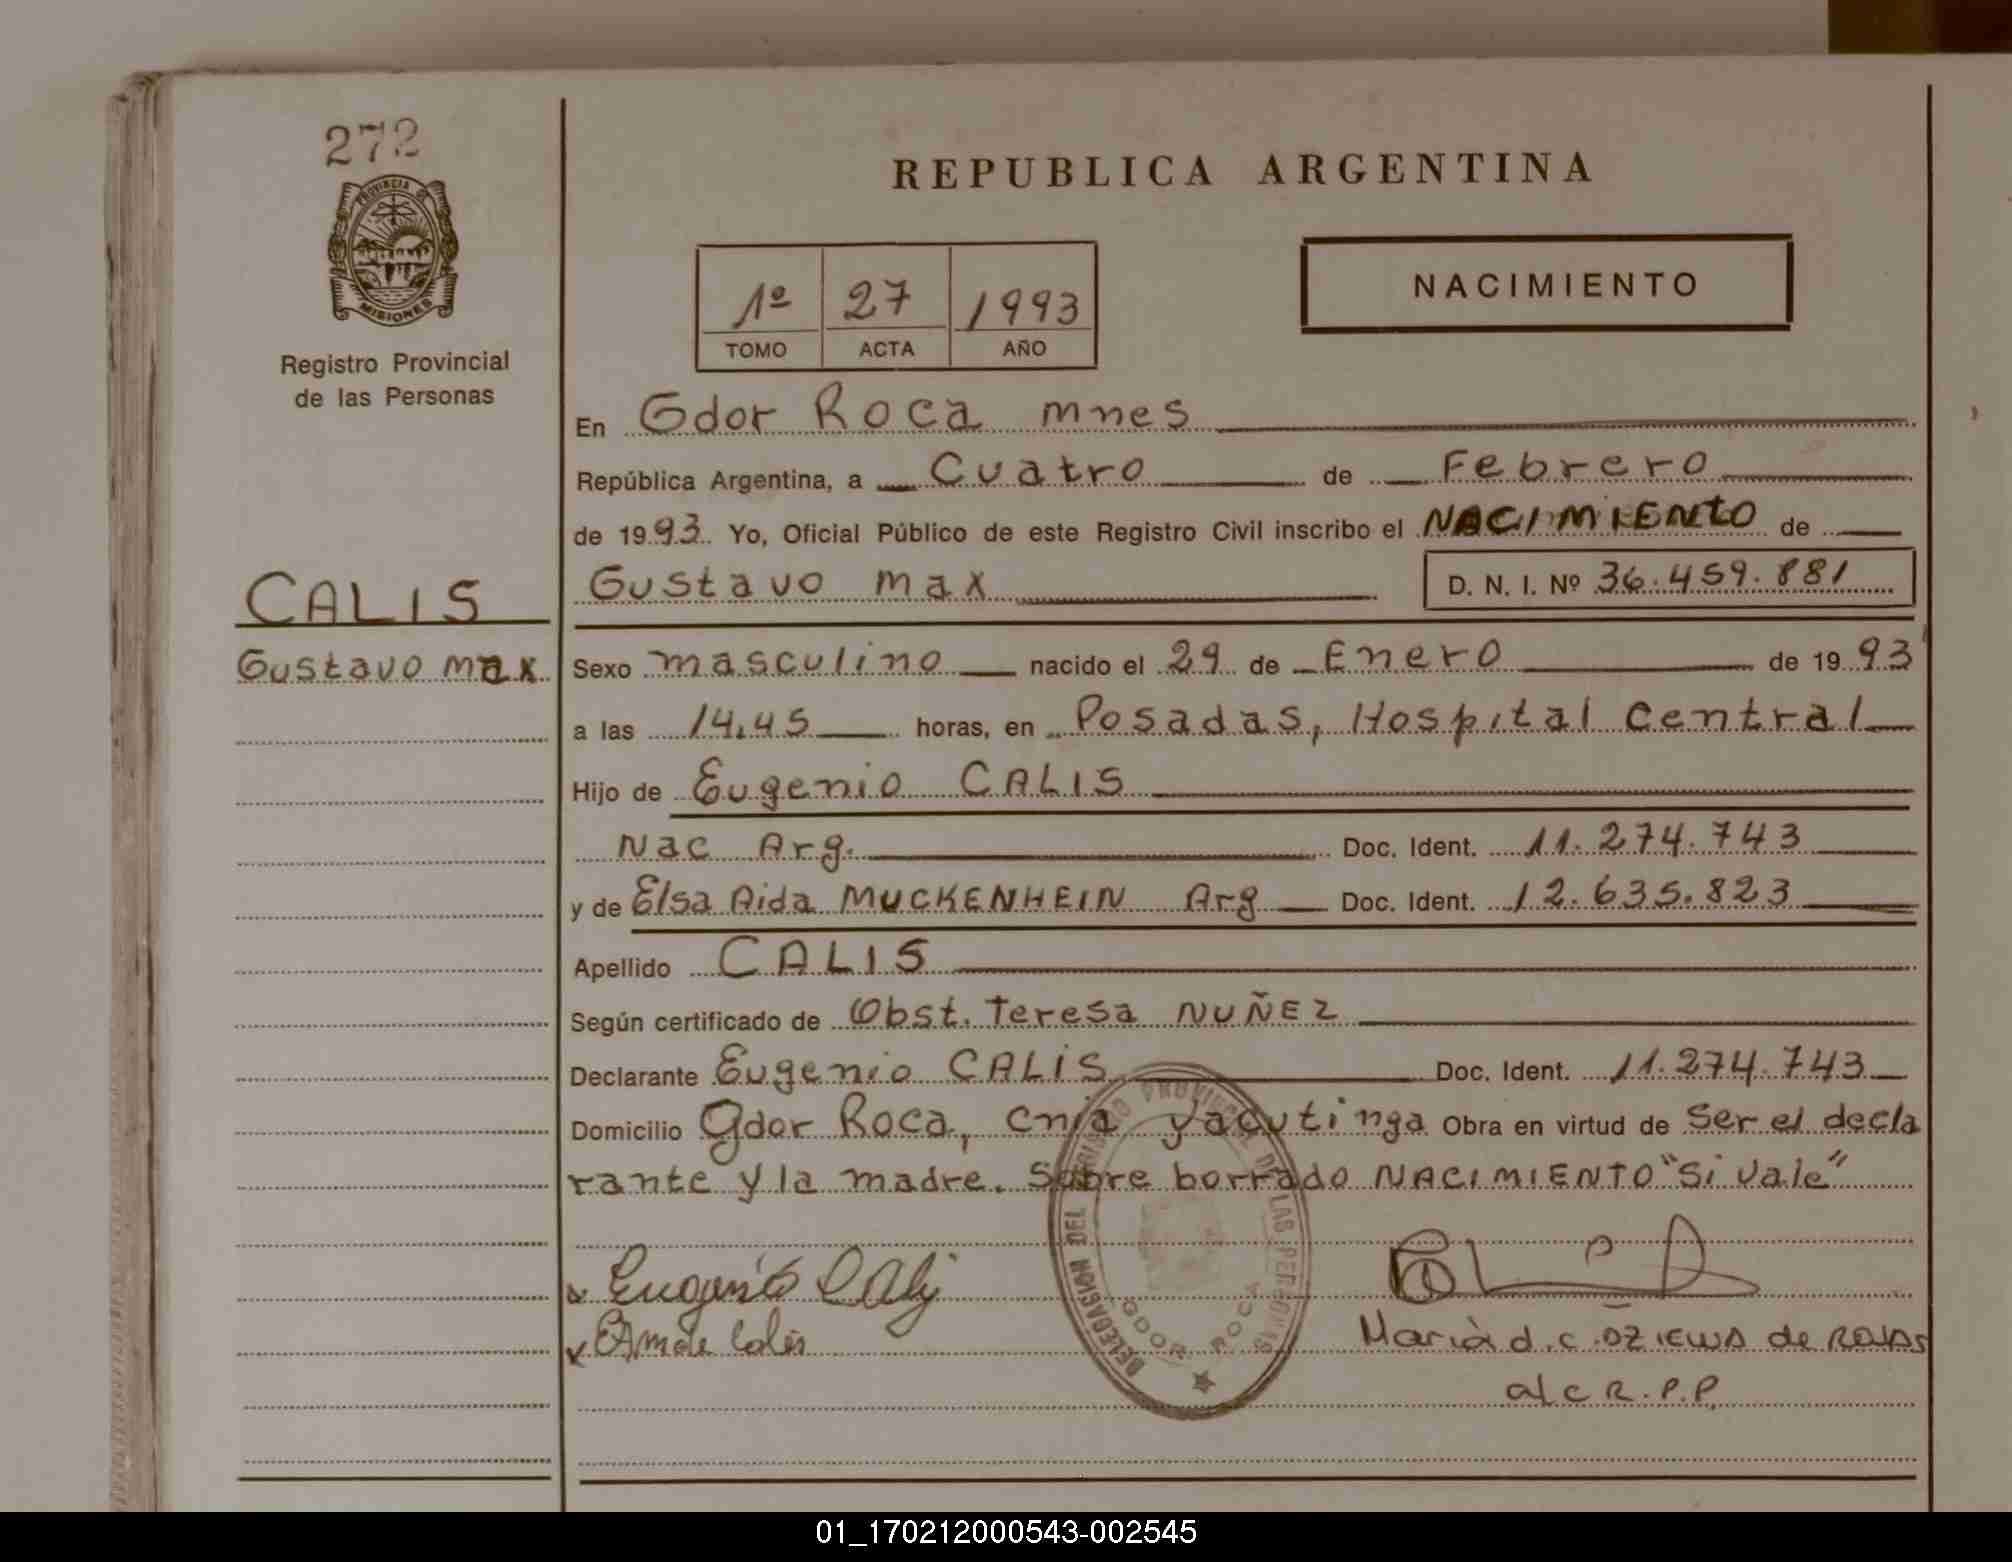 272
PROVINCIA DE
MISIONES
Registro Provincial
de las Personas
REPUBLICA ARGENTINA
1º 27 1993
TOMO ACTA AÑO
NACIMIENTO
En Gdor Roca mnes
República Argentina, a Cuatro de Febrero
de 1993 Yo, Oficial Público de este Registro Civil inscribo el NACIMIENTO de
Gustavo max D. N. I. Nº 36.459.881
CALIS
Gustavo max
Sexo masculino nacido el 29 de Enero de 1993
a las 14,45 horas, en Posadas, Hospital Central
Hijo de Eugenio CALIS
Nac Arg. Doc. Ident. 11.274.743
y de Elsa Aida MUCKENHEIN Arg Doc. Ident. 12.635.823
Apellido CALIS
Según certificado de Obst. Teresa NUÑEZ
Declarante Eugenio CALIS Doc. Ident. 11.274.743
Domicilio Gdor Roca, Cnia Yacutinga Obra en virtud de Ser el decla
rante y la madre. Sobre borrado NACIMIENTO "Si Vale"
DELEGACION DEL REGISTRO PROVINCIAL DE LAS PERSONAS
GDOR ROCA
Eugenio Calis
María d.c. de ROJAS
R.P.P.
01_170212000543-002545